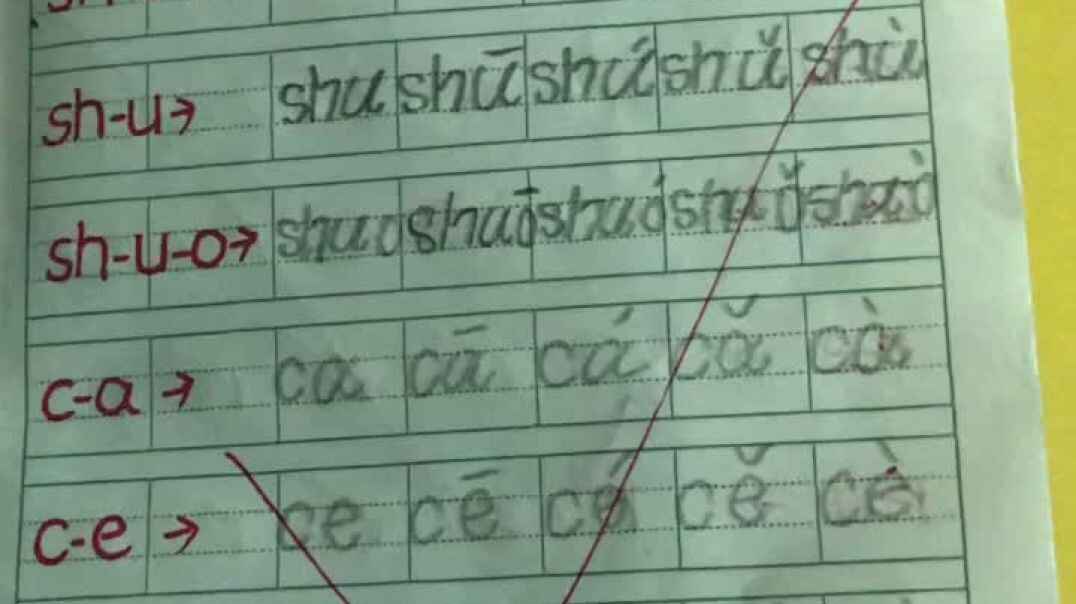 sh-u→ shu shū shú shǔ shù
sh-u-o→ shuo shuō shuó shuǒ shuò
c-a→ ca cā cá cǎ cà
c-e→ ce cē cé cě cè